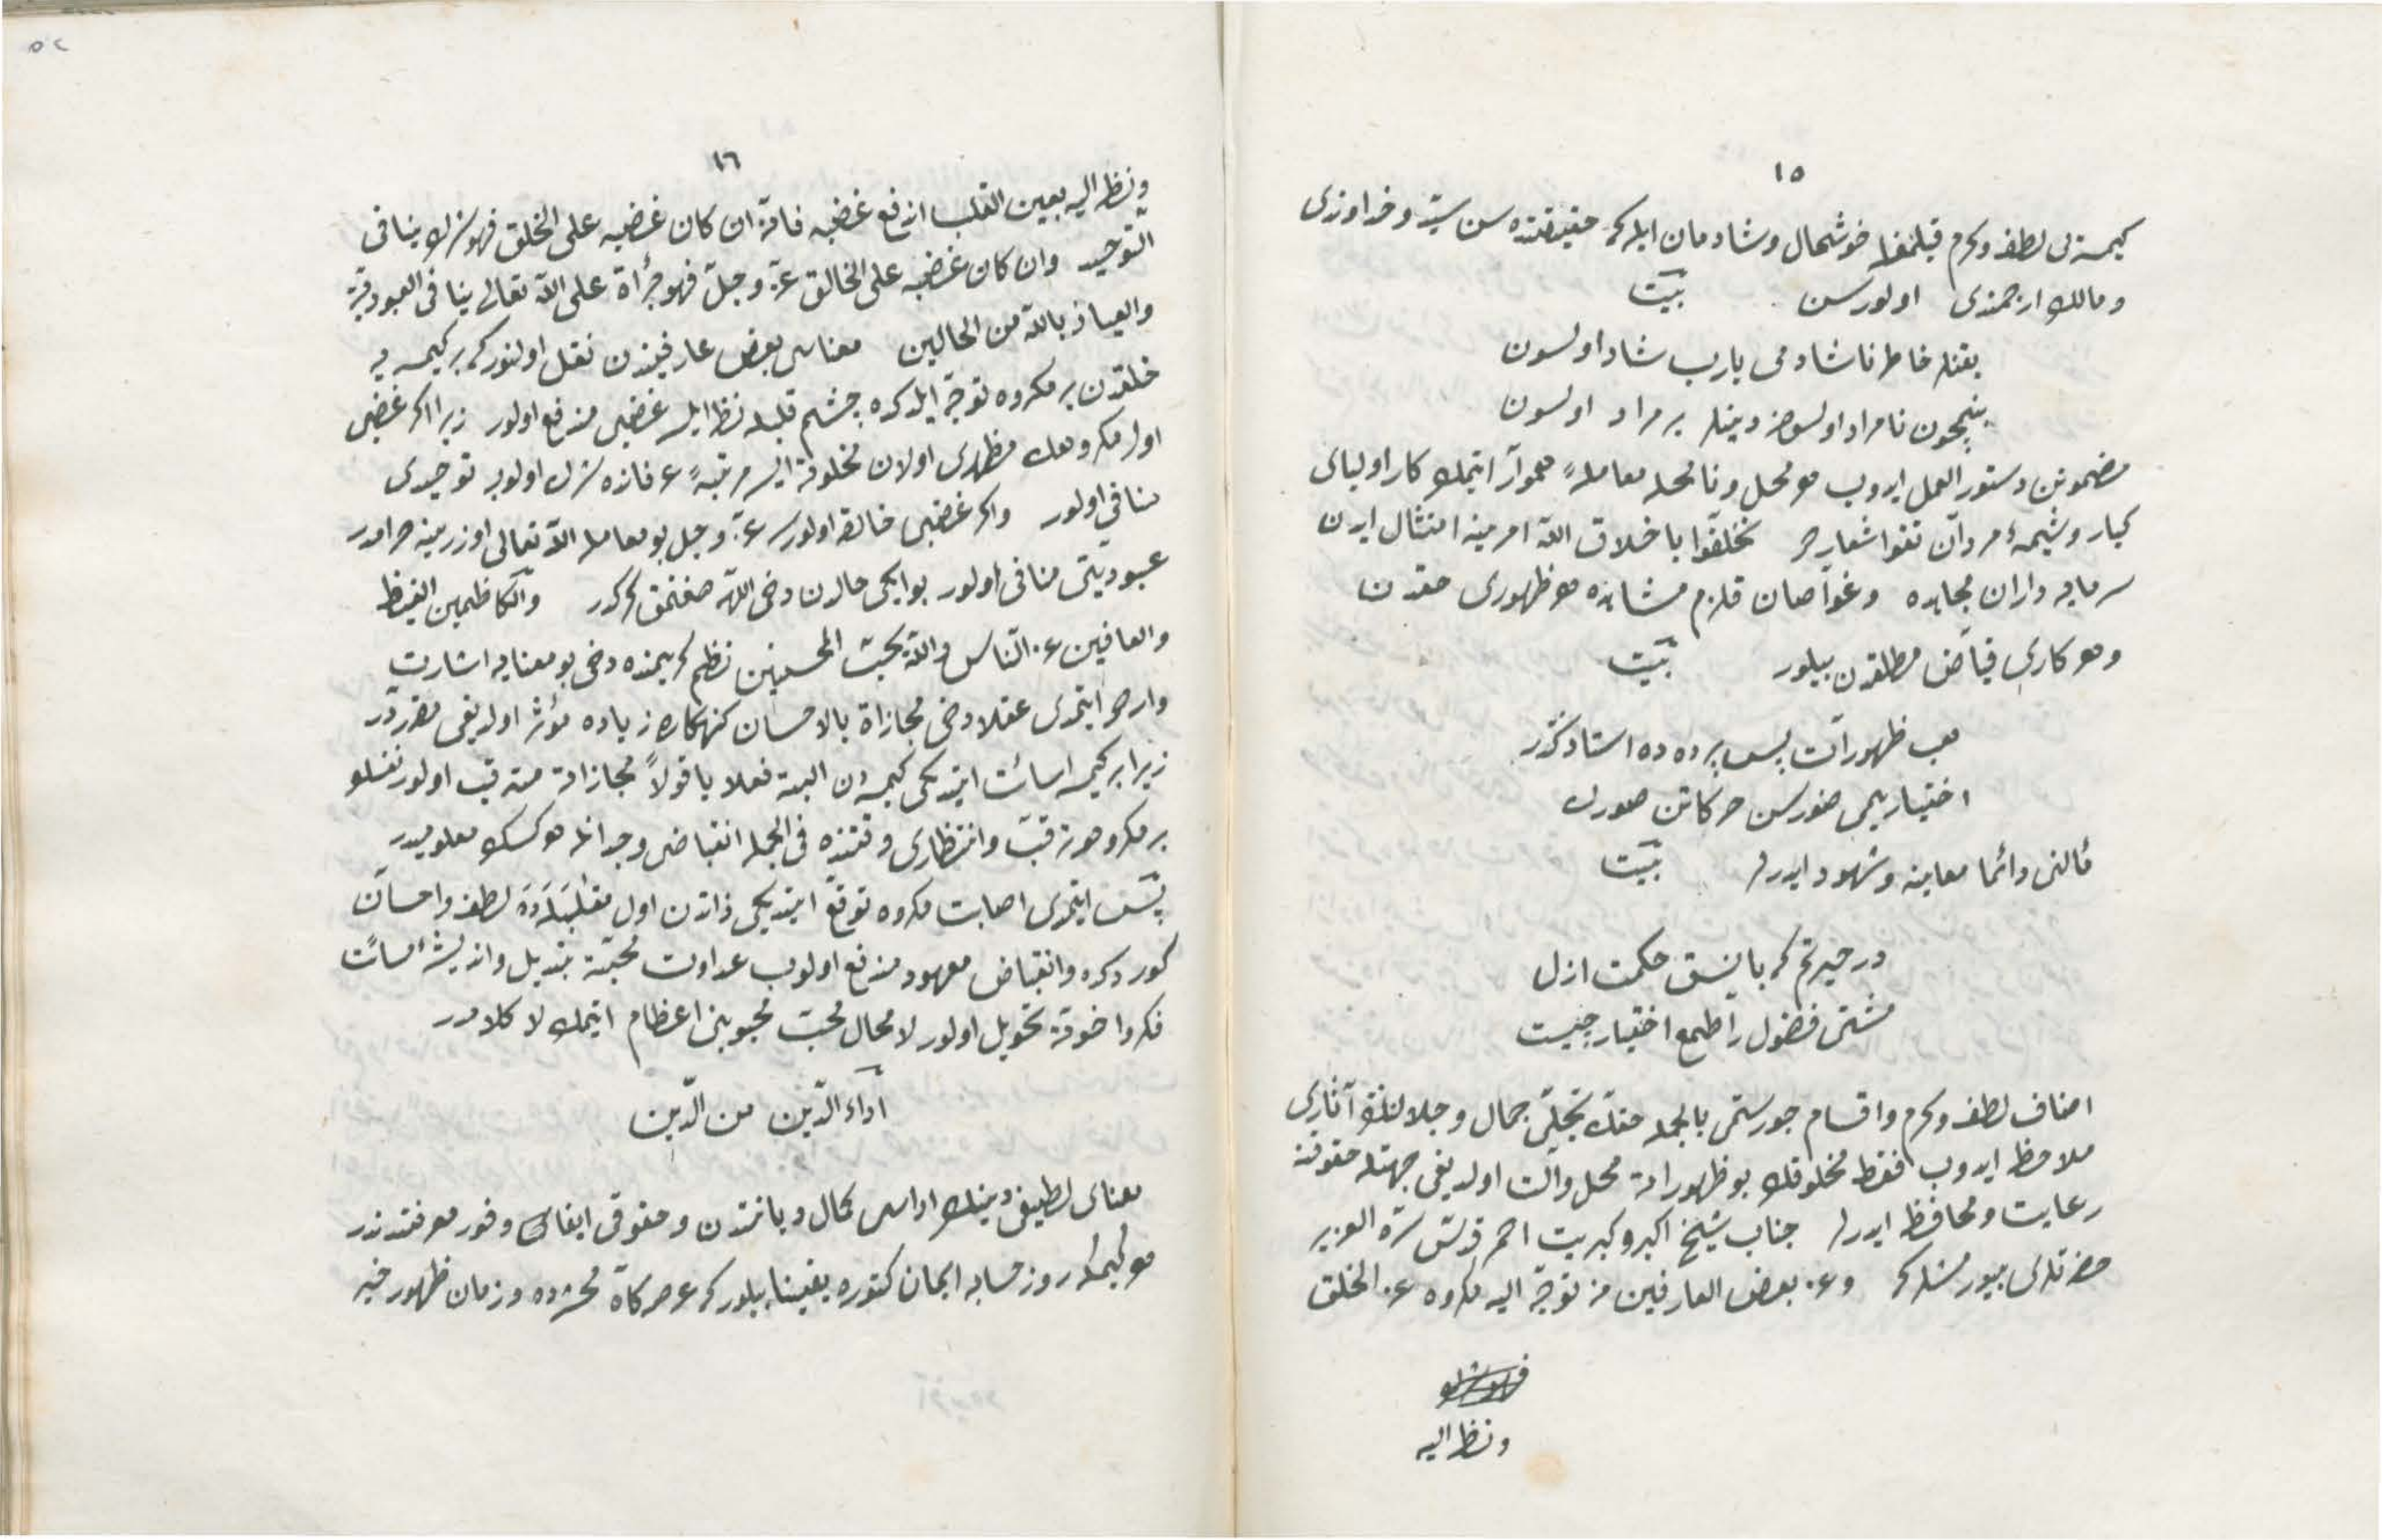 ١٥
كيمسه‌يى لطف وكرم قيلمغله خوشحال وشادمان ايله كه حقيقتده سن سيد وخداوندى
ومالك ارجمندى اولورسن بيت
يقنله خاطر ناشادمى يارب شاد اولسون
بنيچون نامراد اولسون ديينلر بر مراد اولسون
مضمونن دستور العمل ايدوب هو محل ونا محله معامله هموار ايتمك كار اولياى
كبار وشيمهٔ مردان تقوا شعاردر تخلقوا باخلاق الله امرينه امتثال ايدن
سرمايه داران مجاهده وغواصان قلزم مشاهده هو ظهورى حقدن
وهو كارى فياض مطلقدن بيلور بيت
لعب ظهورات پس پرده ده استادكدر
اختيار يمى صنورسن حركاتن صورك
قالنى دائما معاينه وشهود ايدرلر بيت
در حيرتم كه با نسق حكمت ازل
مشتى فضول را طمع اختيار چيست
اصناف لطف وكرم واقسام جور ستمى بالجمله حقك تجلى جمال وجلالنك آثارى
ملاحظه ايدوب فقط مخلوقك بو ظهوراته محل وآلت اولديغى جهتله حقوقنه
رعايت ومحافظه ايدرلر جناب شيخ اكبر وكبريت احمر قدس سره العزيز
حضرتلرى بيورمشلر كه وعن بعض العارفين من توجه اليه مكروه عن الخلق
ونظر اليه
١٦
ونظر اليه بعين القلب اندفع غضبه فانه ان كان غضبه على الخلق فهو شرك ينافى
التوحيد وان كان غضبه على الخالق عز وجل فهو جرأة على الله تعالى ينافى العبودية
والعياذ بالله من الحالين معناسى بعض عارفيندن نقل اولنور كه بر كيمسه يه
خلقدن بر مكروه توجه ايلدكده چشم قلبله نظر ايلسه غضبى مندفع اولور زيرا اكر غضبى
اول مكروهك مظهرى اولان مخلوقه ايسه مرتبهٔ عرفانده شرك اولوب توحيدى
منافى اولور واكر غضبى خالقه اولورسه عز وجل بو معامله الله تعالى اوزرينه جرأتدر
عبوديتى منافى اولور بو ايكى حالدن دخى الله صغنمق كركدر والكاظمين الغيظ
والعافين عن الناس والله يحب المحسنين نظم كريمنده دخى بو معنايه اشارت
واردر ايمدى عقلا دخى مجازاة بالاحسان كنهكاره زياده مؤثر اولديغى مقرردر
زيرا بر كيمسه اسائت ايتديكى كيمسه دن البته فعلا يا قولاً مجازاته مترقب اولور نفسلو
بر مكروهه ترقب وانتظارى وقتنده فى الجمله انقباض وجدانله هو كسك معلوميدر
پس ايمدى اصابت مكروه توقع ايتديكى ذاتدن اول مقابله ده لطف واحسان
كوردكده وانقباض معهود مندفع اولوب عداوت محبته تبديل وانديشهٔ اسائت
فكر واخوته تحويل اولور لا محال محبت محبوبنى اعظام ايتمك لا كلامدر
اداء الدين من الدين
معناى لطيفى دينك اداسى كمال ديانتدن وحقوقى ايفاسى وفور معرفتدندر
هو كيمكه روز حسابه ايمان كتوره يقينا بيلور كه عرصه‌كاه محشرده وزمان ظهور خير